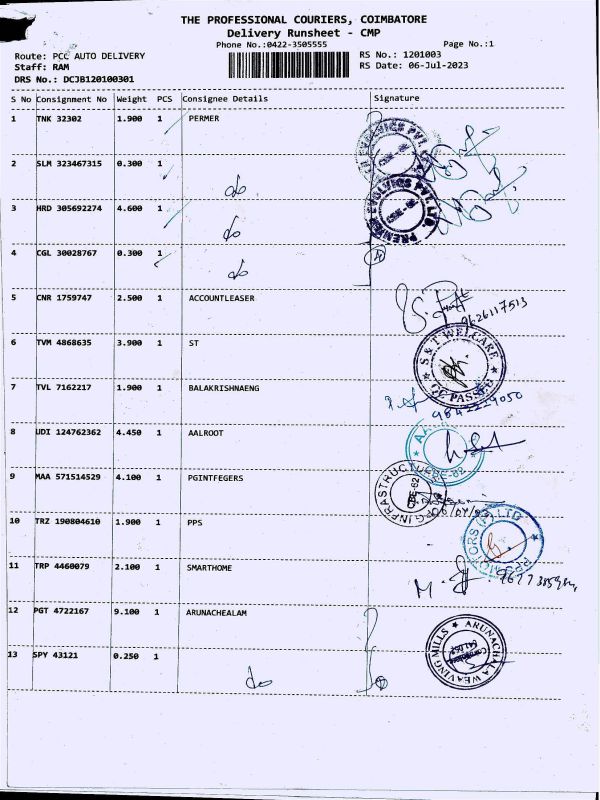 THE PROFESSIONAL COURIERS, COIMBATORE
Delivery Runsheet - CMP
Phone No.:0422-3505555 Page No.:1
Route: PCC AUTO DELIVERY RS No.: 1201003
Staff: RAM RS Date: 06-Jul-2023
DRS No.: DCJB120100301
S No Consignment No Weight PCS Consignee Details Signature
1 TNK 32302 1.900 1 PERMER
2 SLM 323467315 0.300 1 do
3 HRD 305692274 4.600 1 do
PREMIER EVOLVICS PVT. LTD.
4 CGL 30028767 0.300 1 do 4
5 CNR 1759747 2.500 1 ACCOUNTLEASER
9626117513
6 TVM 4868635 3.900 1 ST
S & T WELCARE
7 TVL 7162217 1.900 1 BALAKRISHNAENG
8 UDI 124762362 4.450 1 AALROOT
9 MAA 571514529 4.100 1 PGINTFEGERS
INFRASTRUCTURE
10 TRZ 190804610 1.900 1 PPS
PPS MOTORS (P) LTD
11 TRP 4460079 2.100 1 SMARTHOME
12 PGT 4722167 9.100 1 ARUNACHEALAM
ARUNACHALA WEAVING MILLS
13 SPY 43121 0.250 1 do